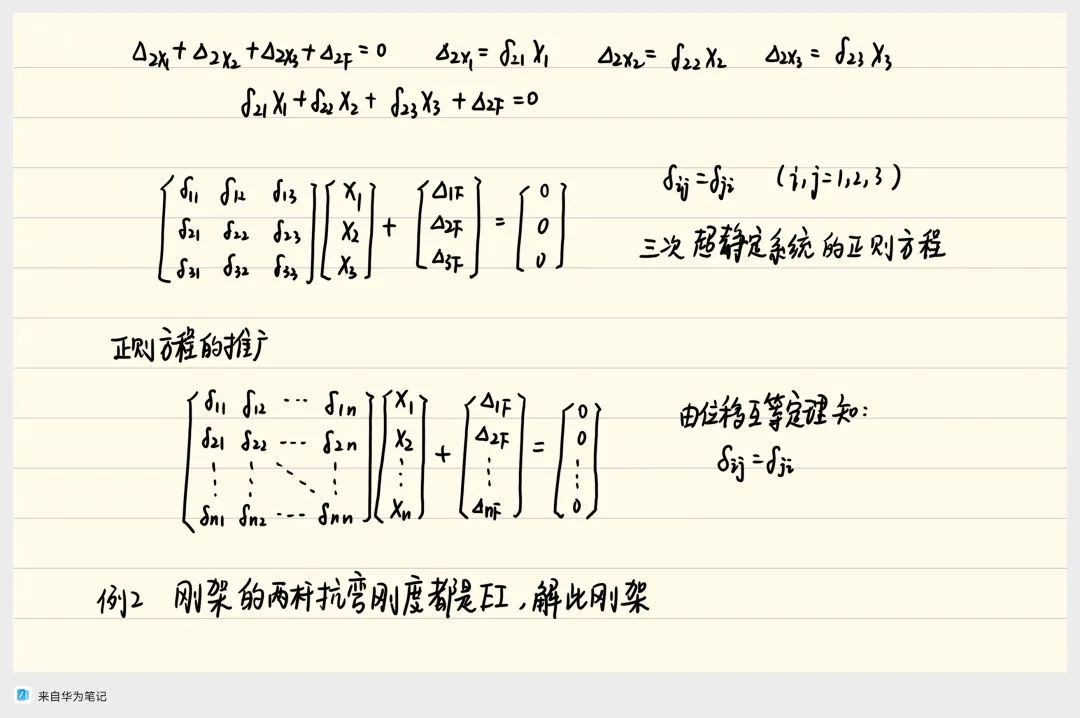 Δ₂ₓ₁ + Δ₂ₓ₂ + Δ₂ₓ₃ + Δ₂F = 0 Δ₂ₓ₁ = δ₂₁X₁ Δ₂ₓ₂ = δ₂₂X₂ Δ₂ₓ₃ = δ₂₃X₃
δ₂₁X₁ + δ₂₂X₂ + δ₂₃X₃ + Δ₂F = 0
[δ₁₁ δ₁₂ δ₁₃; δ₂₁ δ₂₂ δ₂₃; δ₃₁ δ₃₂ δ₃₃][X₁; X₂; X₃] + [Δ₁F; Δ₂F; Δ₃F] = [0; 0; 0]
δij = δji (i,j=1,2,3)
三次超静定系统的正则方程
正则方程的推广
[δ₁₁ δ₁₂ ⋯ δ₁n; δ₂₁ δ₂₂ ⋯ δ₂n; ⋮ ⋮ ⋱ ⋮; δn₁ δn₂ ⋯ δnn][X₁; X₂; ⋮; Xn] + [Δ₁F; Δ₂F; ⋮; ΔnF] = [0; 0; ⋮; 0]
由位移互等定理知:
δij = δji
例2 刚架的两杆抗弯刚度都是EI,解此刚架
来自华为笔记